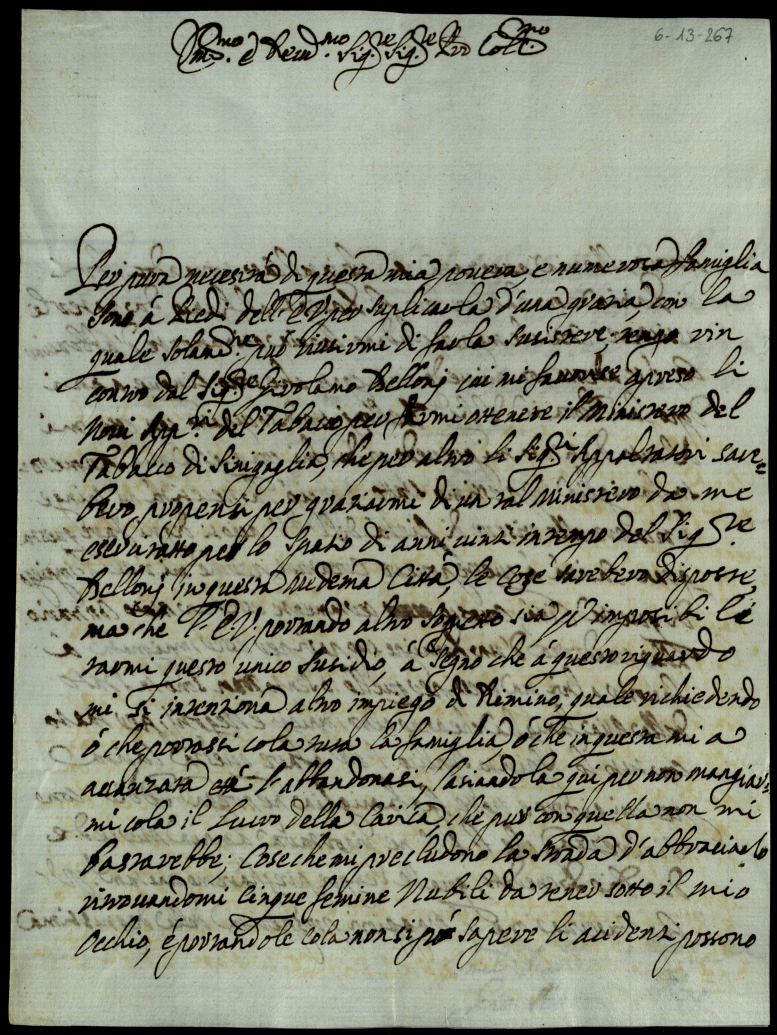 6-13-267
Ill.mo e Rev.mo Sig.re Sig.re P.ron Coll.mo
Per pura necesità di questa mia povera, e numerosa famiglia
sono à Piedi dell'E.V. per suplicarla d'una grazia, con la
quale solam.te può riusirmi di farla susistere tengo rin
contro dal Sig.re Girolamo Bellonj cui mi favorise apreso li
Novi App.ri del Tabaco per farmi ottenere il Ministero del
Tabacco di Sinigaglia, che per altro li Sig.ri Appaltatori sare=
bero propensi per graziarmi di un tal Ministero da me
esercitatto per lo spatio di anni vinti in tempo del Sig.re
Bellonj in questa medema Città, le cose sarebero disposte,
ma che l'E.V. portando altro sogetto sia imposibile
rarmi questo unico susidio, à segno che à questo riguardo
mi si intenziona altro impiego di Rimino, quale richiedendo
ò che portassi cola tuta la famiglia, ò che in questa mia
avanzata età l'abbandonasi, lasiandola qui per non mangiar=
mi cola il Lucro della Carica, che pur con quella non mi
bastarebbe; Cose che mi precludono la Strada d'abbraciarlo
ritrovandomi Cinque femine Nubili da tener sotto il mio
Occhio, è portandole cola non si pò sapere li acidenti possono